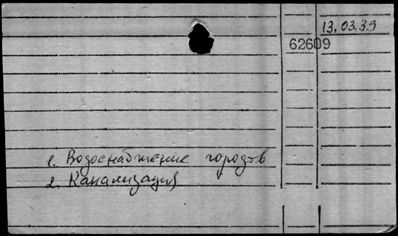 13.03.39
62609
1. Водоснабжение городов
2. Канализация